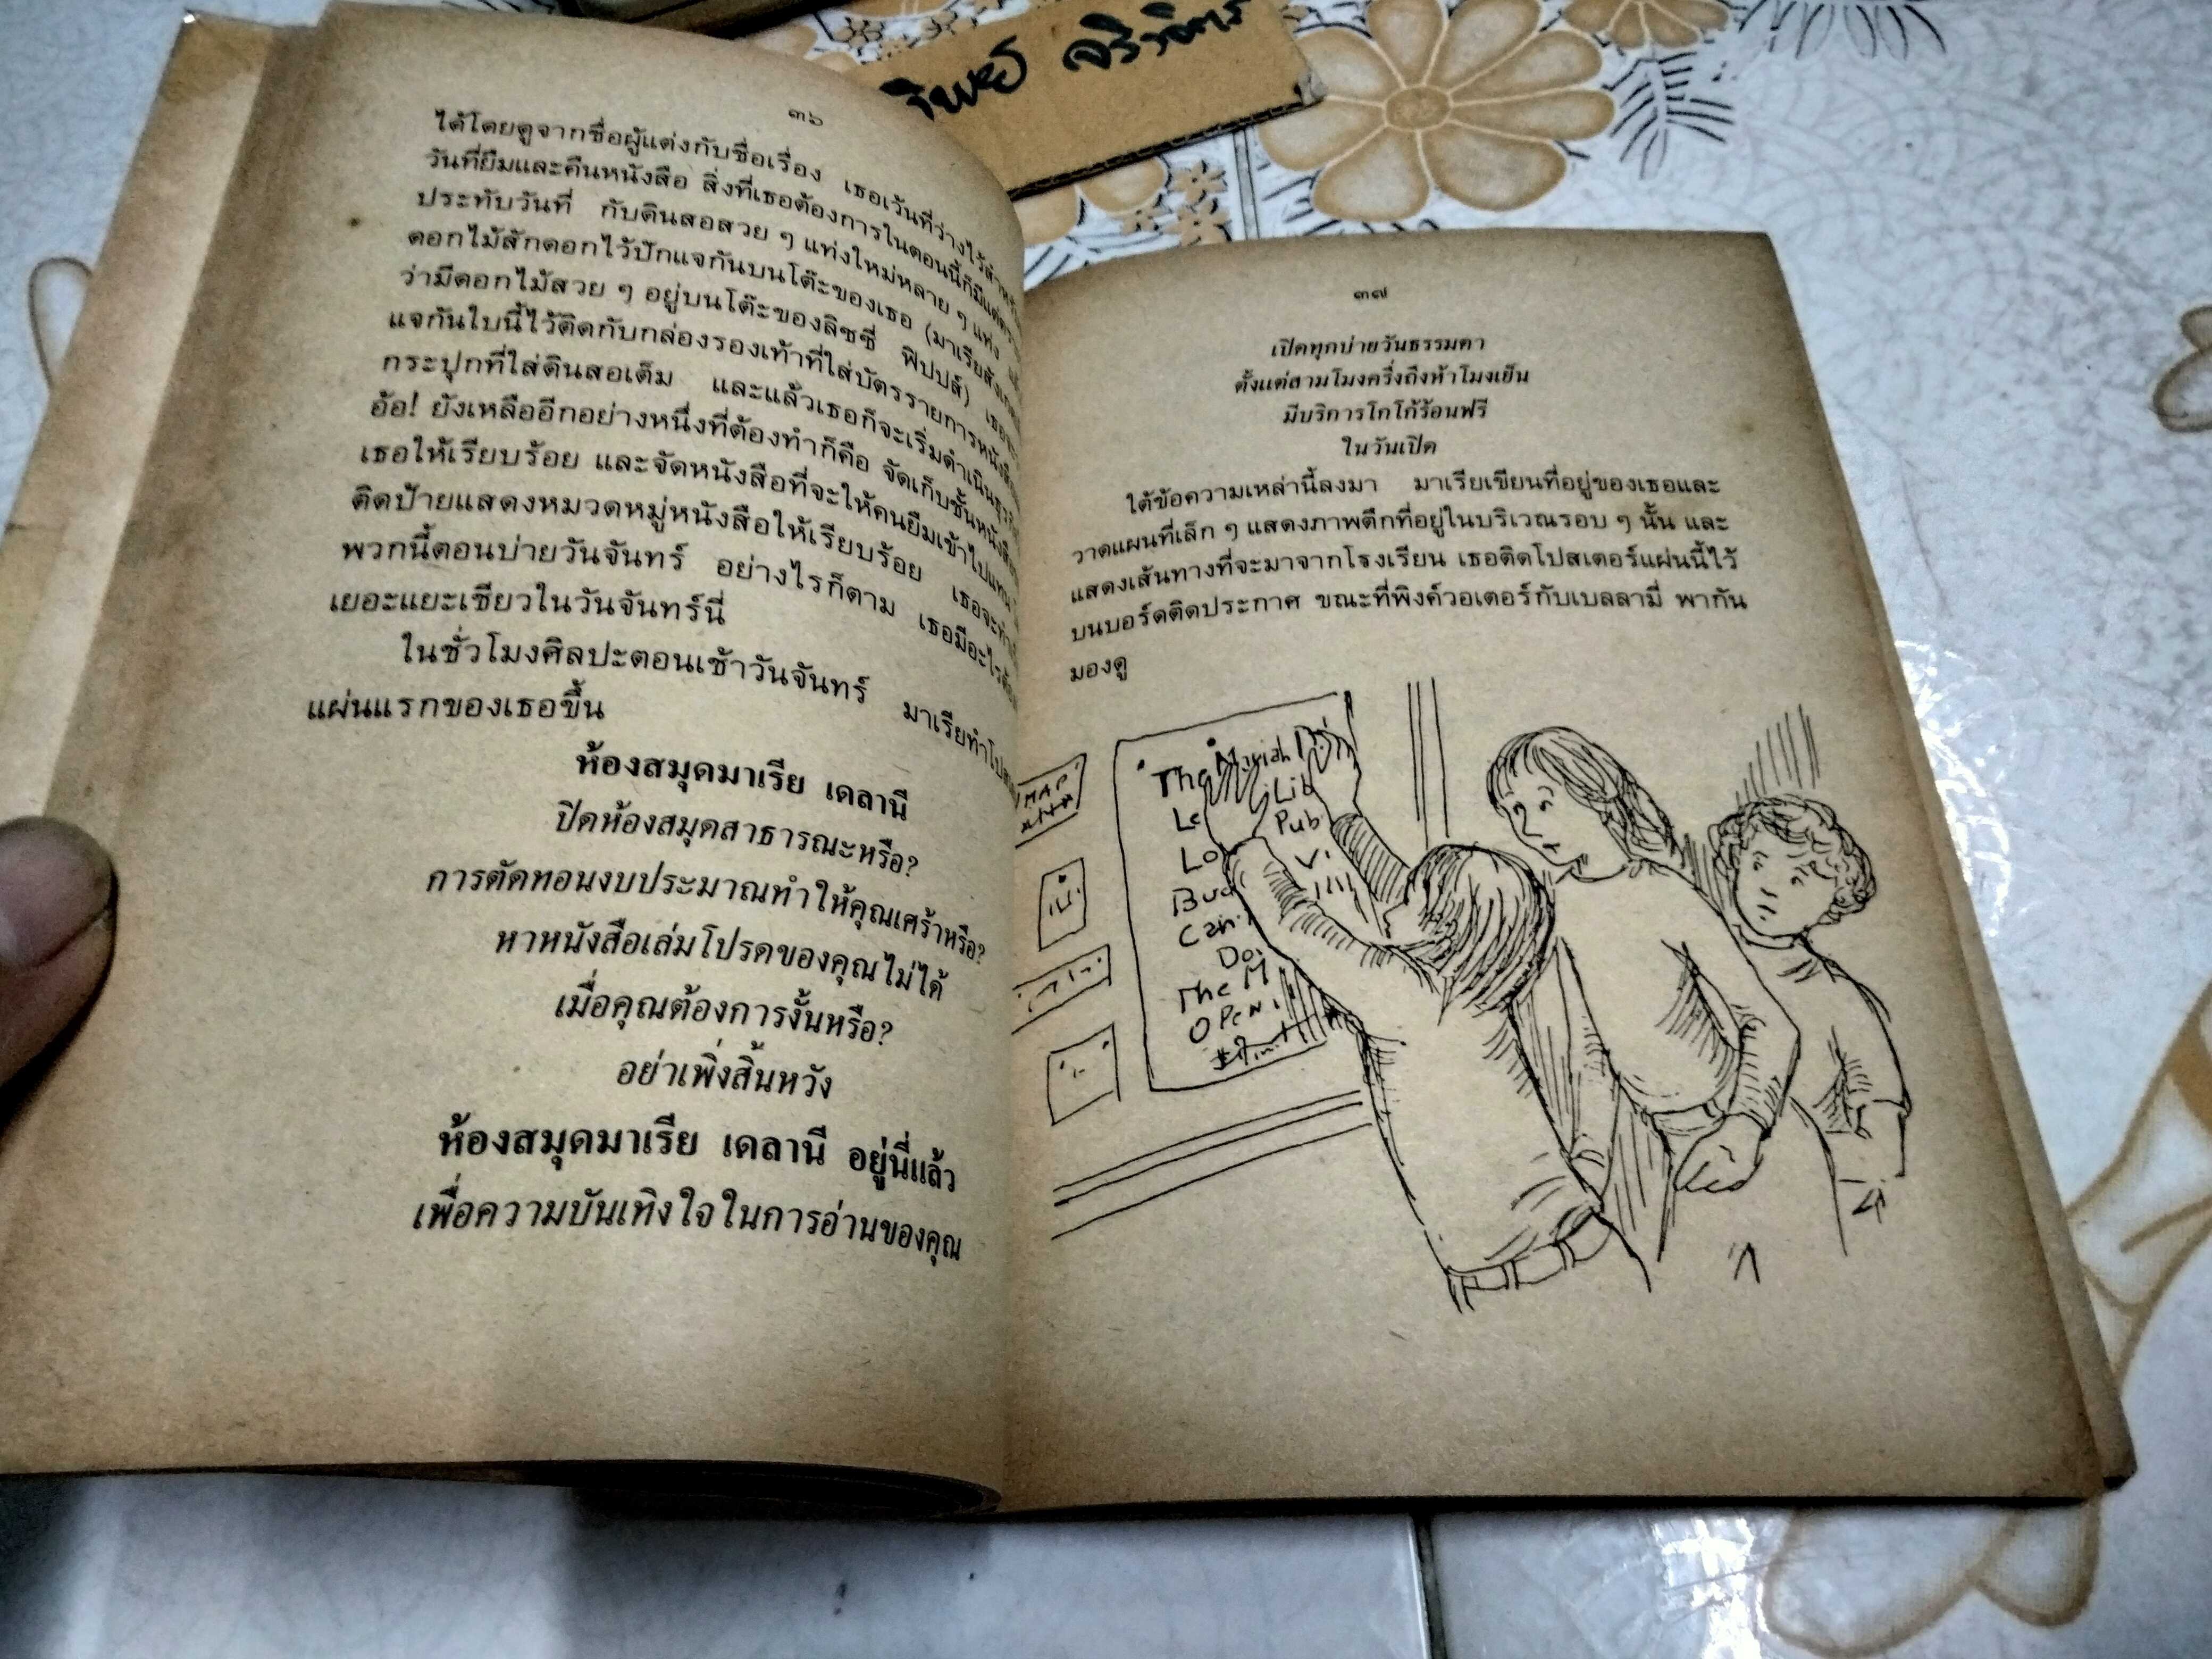 จริวจิตร
๓๖
ได้โดยดูจากชื่อผู้แต่งกับชื่อเรื่อง เธอเว้นที่ว่างไว้สำหรับ
วันที่ยืมและคืนหนังสือ สิ่งที่เธอต้องการในตอนนี้ก็มีแต่ตรา
ประทับวันที่ กับดินสอสวย ๆ แท่งใหม่หลาย ๆ แท่ง
ดอกไม้สักดอกไว้ปักแจกันบนโต๊ะของเธอ (มาเรียสังเกต
ว่ามีดอกไม้สวย ๆ อยู่บนโต๊ะของลิซซี่ ฟิปปส์)
แจกันใบนี้ไว้ติดกับกล่องรองเท้าที่ใส่บัตรรายการหนังสือ
กระปุกที่ใส่ดินสอเต็ม และแล้วเธอก็จะเริ่มดำเนินธุรกิจ
อ้อ! ยังเหลืออีกอย่างหนึ่งที่ต้องทำก็คือ จัดเก็บชั้นหนังสือ
เธอให้เรียบร้อย และจัดหนังสือที่จะให้คนยืมเข้าไปแทน
ติดป้ายแสดงหมวดหมู่หนังสือให้เรียบร้อย เธอจะทำ
พวกนี้ตอนบ่ายวันจันทร์ อย่างไรก็ตาม เธอมีอะไร
เยอะแยะเชียวในวันจันทร์นี่
ในชั่วโมงศิลปะตอนเช้าวันจันทร์ มาเรียทำ
แผ่นแรกของเธอขึ้น
ห้องสมุดมาเรีย เดลานี
ปิดห้องสมุดสาธารณะหรือ?
การตัดทอนงบประมาณทำให้คุณเศร้าหรือ?
หาหนังสือเล่มโปรดของคุณไม่ได้
เมื่อคุณต้องการงั้นหรือ?
อย่าเพิ่งสิ้นหวัง
ห้องสมุดมาเรีย เดลานี อยู่นี่แล้ว
เพื่อความบันเทิงใจในการอ่านของคุณ
๓๗
เปิดทุกบ่ายวันธรรมดา
ตั้งแต่สามโมงครึ่งถึงห้าโมงเย็น
มีบริการโกโก้ร้อนฟรี
ในวันเปิด
ใต้ข้อความเหล่านี้ลงมา มาเรียเขียนที่อยู่ของเธอและ
วาดแผนที่เล็ก ๆ แสดงภาพตึกที่อยู่ในบริเวณรอบ ๆ นั้น และ
แสดงเส้นทางที่จะมาจากโรงเรียน เธอติดโปสเตอร์แผ่นนี้ไว้
บนบอร์ดติดประกาศ ขณะที่พิงค์วอเตอร์กับเบลลามี่ พากัน
มองดู
MAP
The Mariah
Lib
Le
Pub
Lo
Bud
Can
Do
The M
OPEN